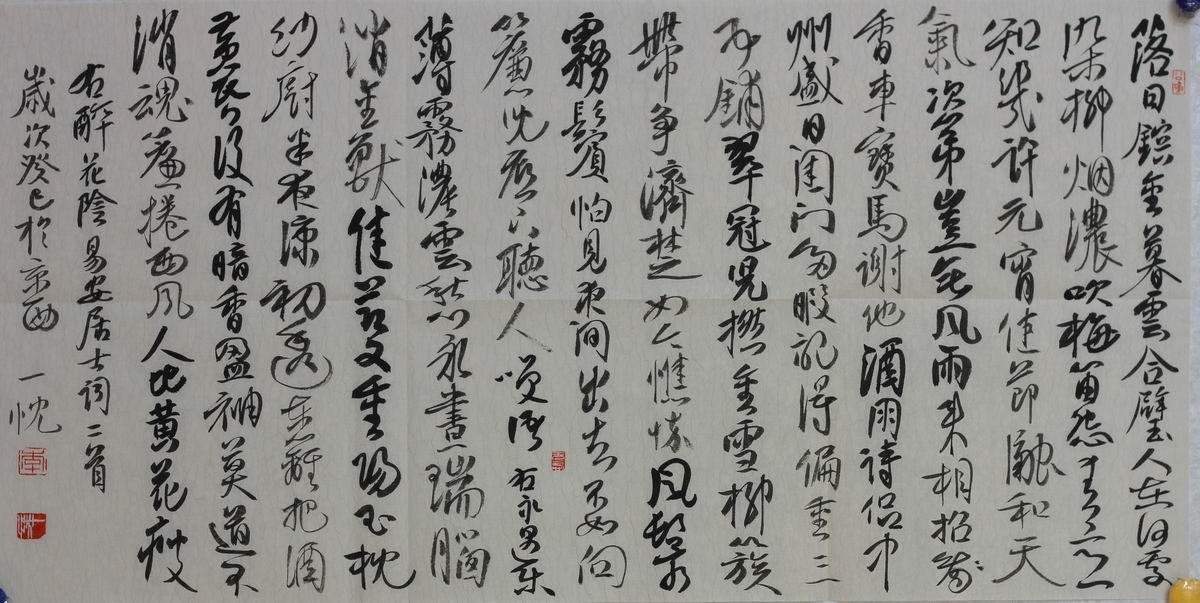 落日鎔金暮雲合璧人在何處
染柳烟濃吹梅笛怨春意
知幾許元宵佳節融和天
氣次第豈無風雨來相招
香車寶馬謝他酒朋詩侶中
州盛日閨門多暇記得偏重三
五鋪翠冠兒撚金雪柳簇
帶爭濟楚如今憔悴風鬟霜
霧鬢怕見夜間出去不如向
簾兒底下聽人笑語 右永遇樂
薄霧濃雲愁永晝瑞腦
消金獸佳節又重陽玉枕
紗廚半夜涼初透東籬把酒
黃昏後有暗香盈袖莫道不
消魂簾捲西風人比黃花瘦
右醉花陰易安居士詞二首
歲次癸巳於京西 一忱